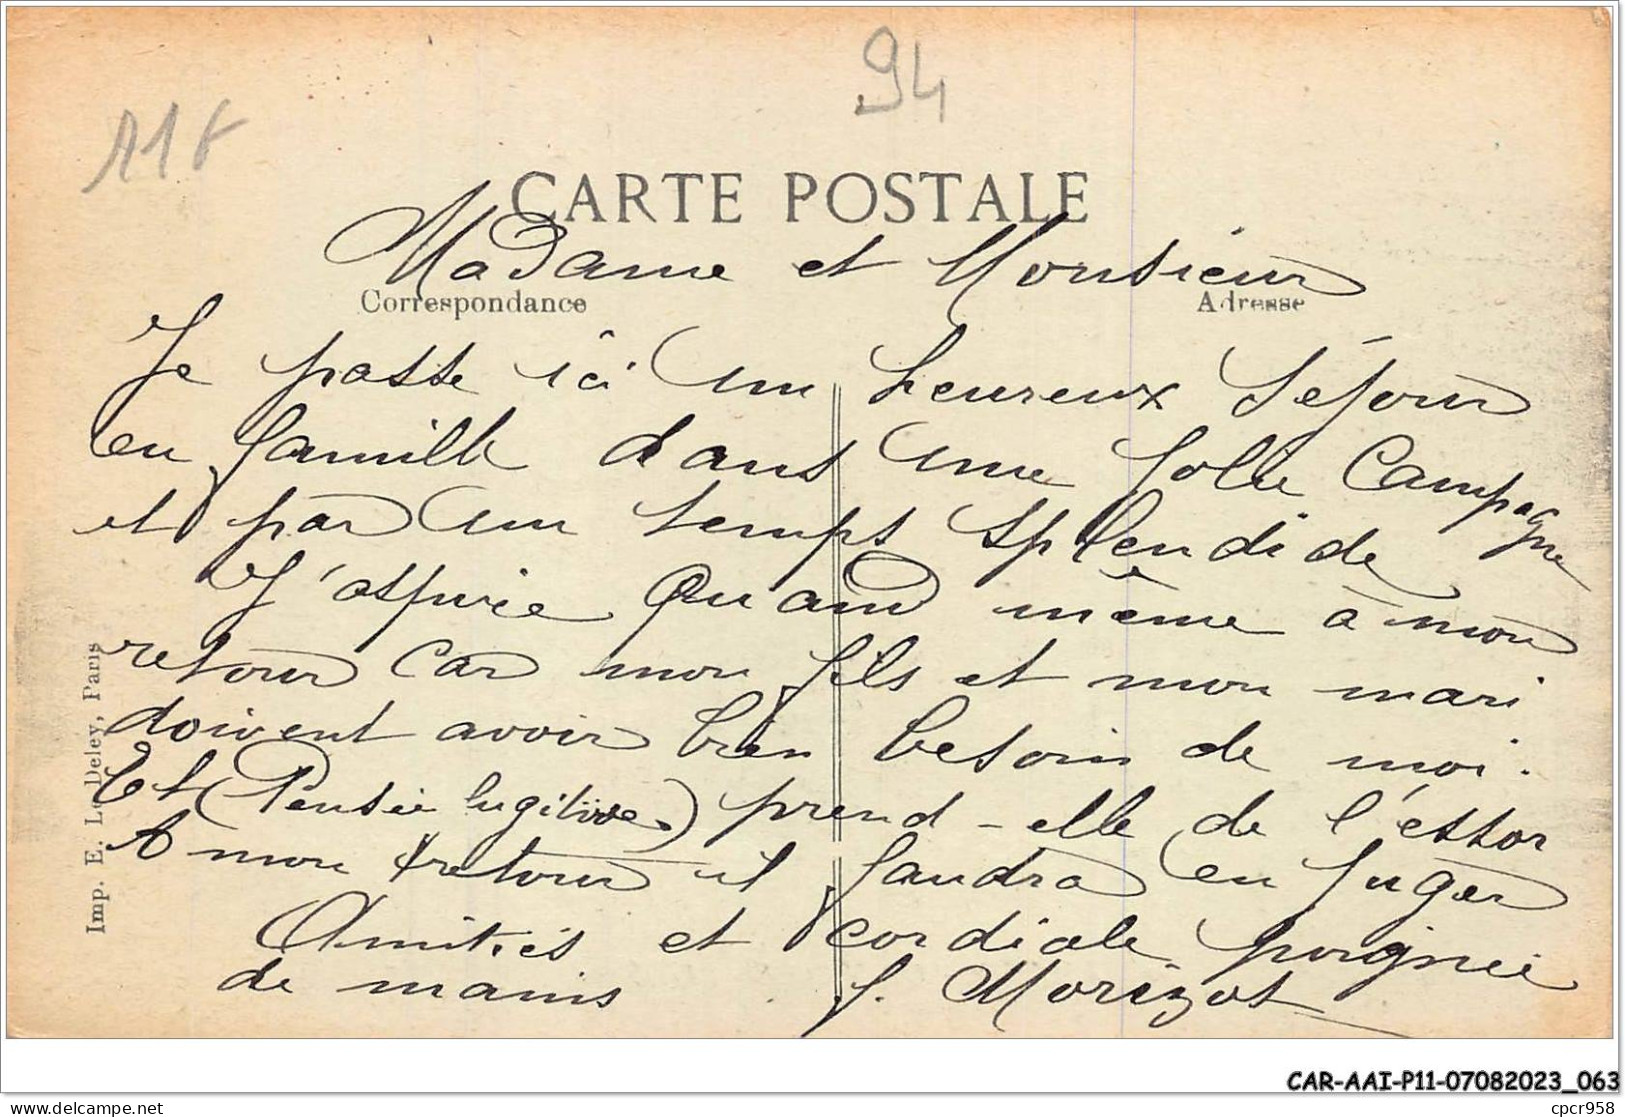 94
118
CARTE POSTALE
Madame et Monsieur
Correspondance
Adresse
Je passe ici un heureux Séjour
en famille dans une Jolie Campagne
et par un temps splendide
J'aspire Quand même à mon
retour car mon fils et mon mari
doivent avoir bien besoin de moi.
Et (Pensée fugitive) prend-elle de l'essor
A mon retour il faudra en Juger
Amitiés et cordiale poignée
de mains J. Morizot
Imp. E. Le Deley, Paris
CAR-AAI-P11-07082023_063
delcampe.net
cpcr958